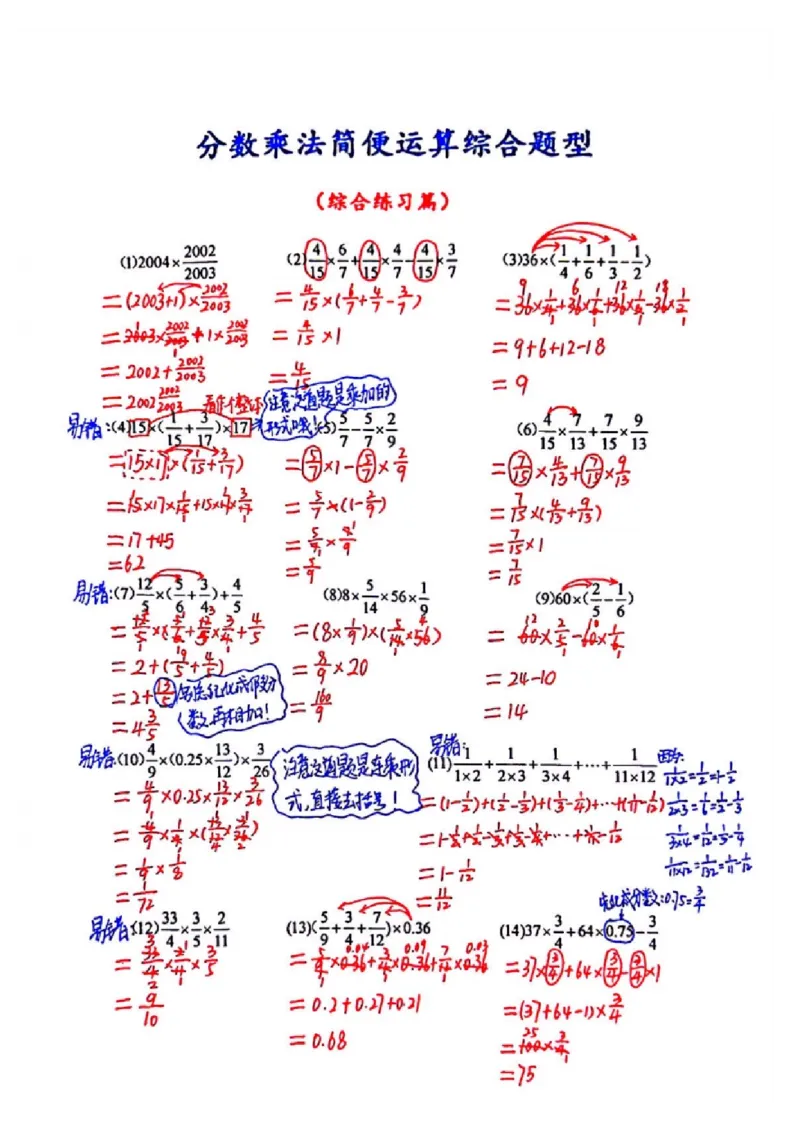 分数乘法简便运算综合题型
（综合练习篇）
(1)2004×2002/2003
=(2003+1)×2002/2003
=2003×2002/2003+1×2002/2003
=2002+2002/2003
=2002 2002/2003
(2)4/15×6/7+4/15×4/7-4/15×3/7
=4/15×(6/7+4/7-3/7)
=4/15×1
=4/15
(3)36×(1/4+1/6+1/3-1/2)
=36×1/4+36×1/6+36×1/3-36×1/2
=9+6+12-18
=9
易错:(4)15×(1/15+3/17)×17
看作个整体
注意这道题是乘加的
形式哦!
=15×17×(1/15+3/17)
=15×17×1/15+15×17×3/17
=17+45
=62
(5)5/7-5/7×2/9
=5/7×1-5/7×2/9
=5/7×(1-2/9)
=5/7×7/9
=5/9
(6)4/15×7/13+7/15×9/13
=7/15×4/13+7/15×9/13
=7/15×(4/13+9/13)
=7/15×1
=7/15
易错:(7)12/5×(5/6+3/4)+4/5
=12/5×5/6+12/5×3/4+4/5
=2+(9/5+4/5)
=2+13/5
=4 3/5
数,再相加!
(8)8×5/14×56×1/9
=(8×1/9)×(5/14×56)
=8/9×20
=160/9
(9)60×(2/5-1/6)
=60×2/5-60×1/6
=24-10
=14
易错:(10)4/9×(0.25×13/12)×3/26
=4/9×0.25×13/12×3/26
=4/9×1/4×(13/12×3/26)
=1/9×1/8
=1/72
注意这道题是连乘形
式,直接去括号!
易错:
(11)1/1×2+1/2×3+1/3×4+⋯+1/11×12
=(1-1/2)+(1/2-1/3)+(1/3-1/4)+⋯+(1/11-1/12)
=1-1/2+1/2-1/3+1/3-1/4+⋯+1/11-1/12
=1-1/12
=11/12
因为:
1/1×2=1/2=1-1/2
1/2×3=1/6=1/2-1/3
1/3×4=1/12=1/3-1/4
1/11×12=1/132=1/11-1/12
易错:(12)33/4×3/5×2/11
=33/4×2/11×3/5
=9/10
(13)(5/9+3/4+7/12)×0.36
=5/9×0.36+3/4×0.36+7/12×0.36
=0.2+0.27+0.21
=0.68
先化成分数:0.75=3/4
(14)37×3/4+64×0.75-3/4
=37×3/4+64×3/4-3/4×1
=(37+64-1)×3/4
=100×3/4
=75